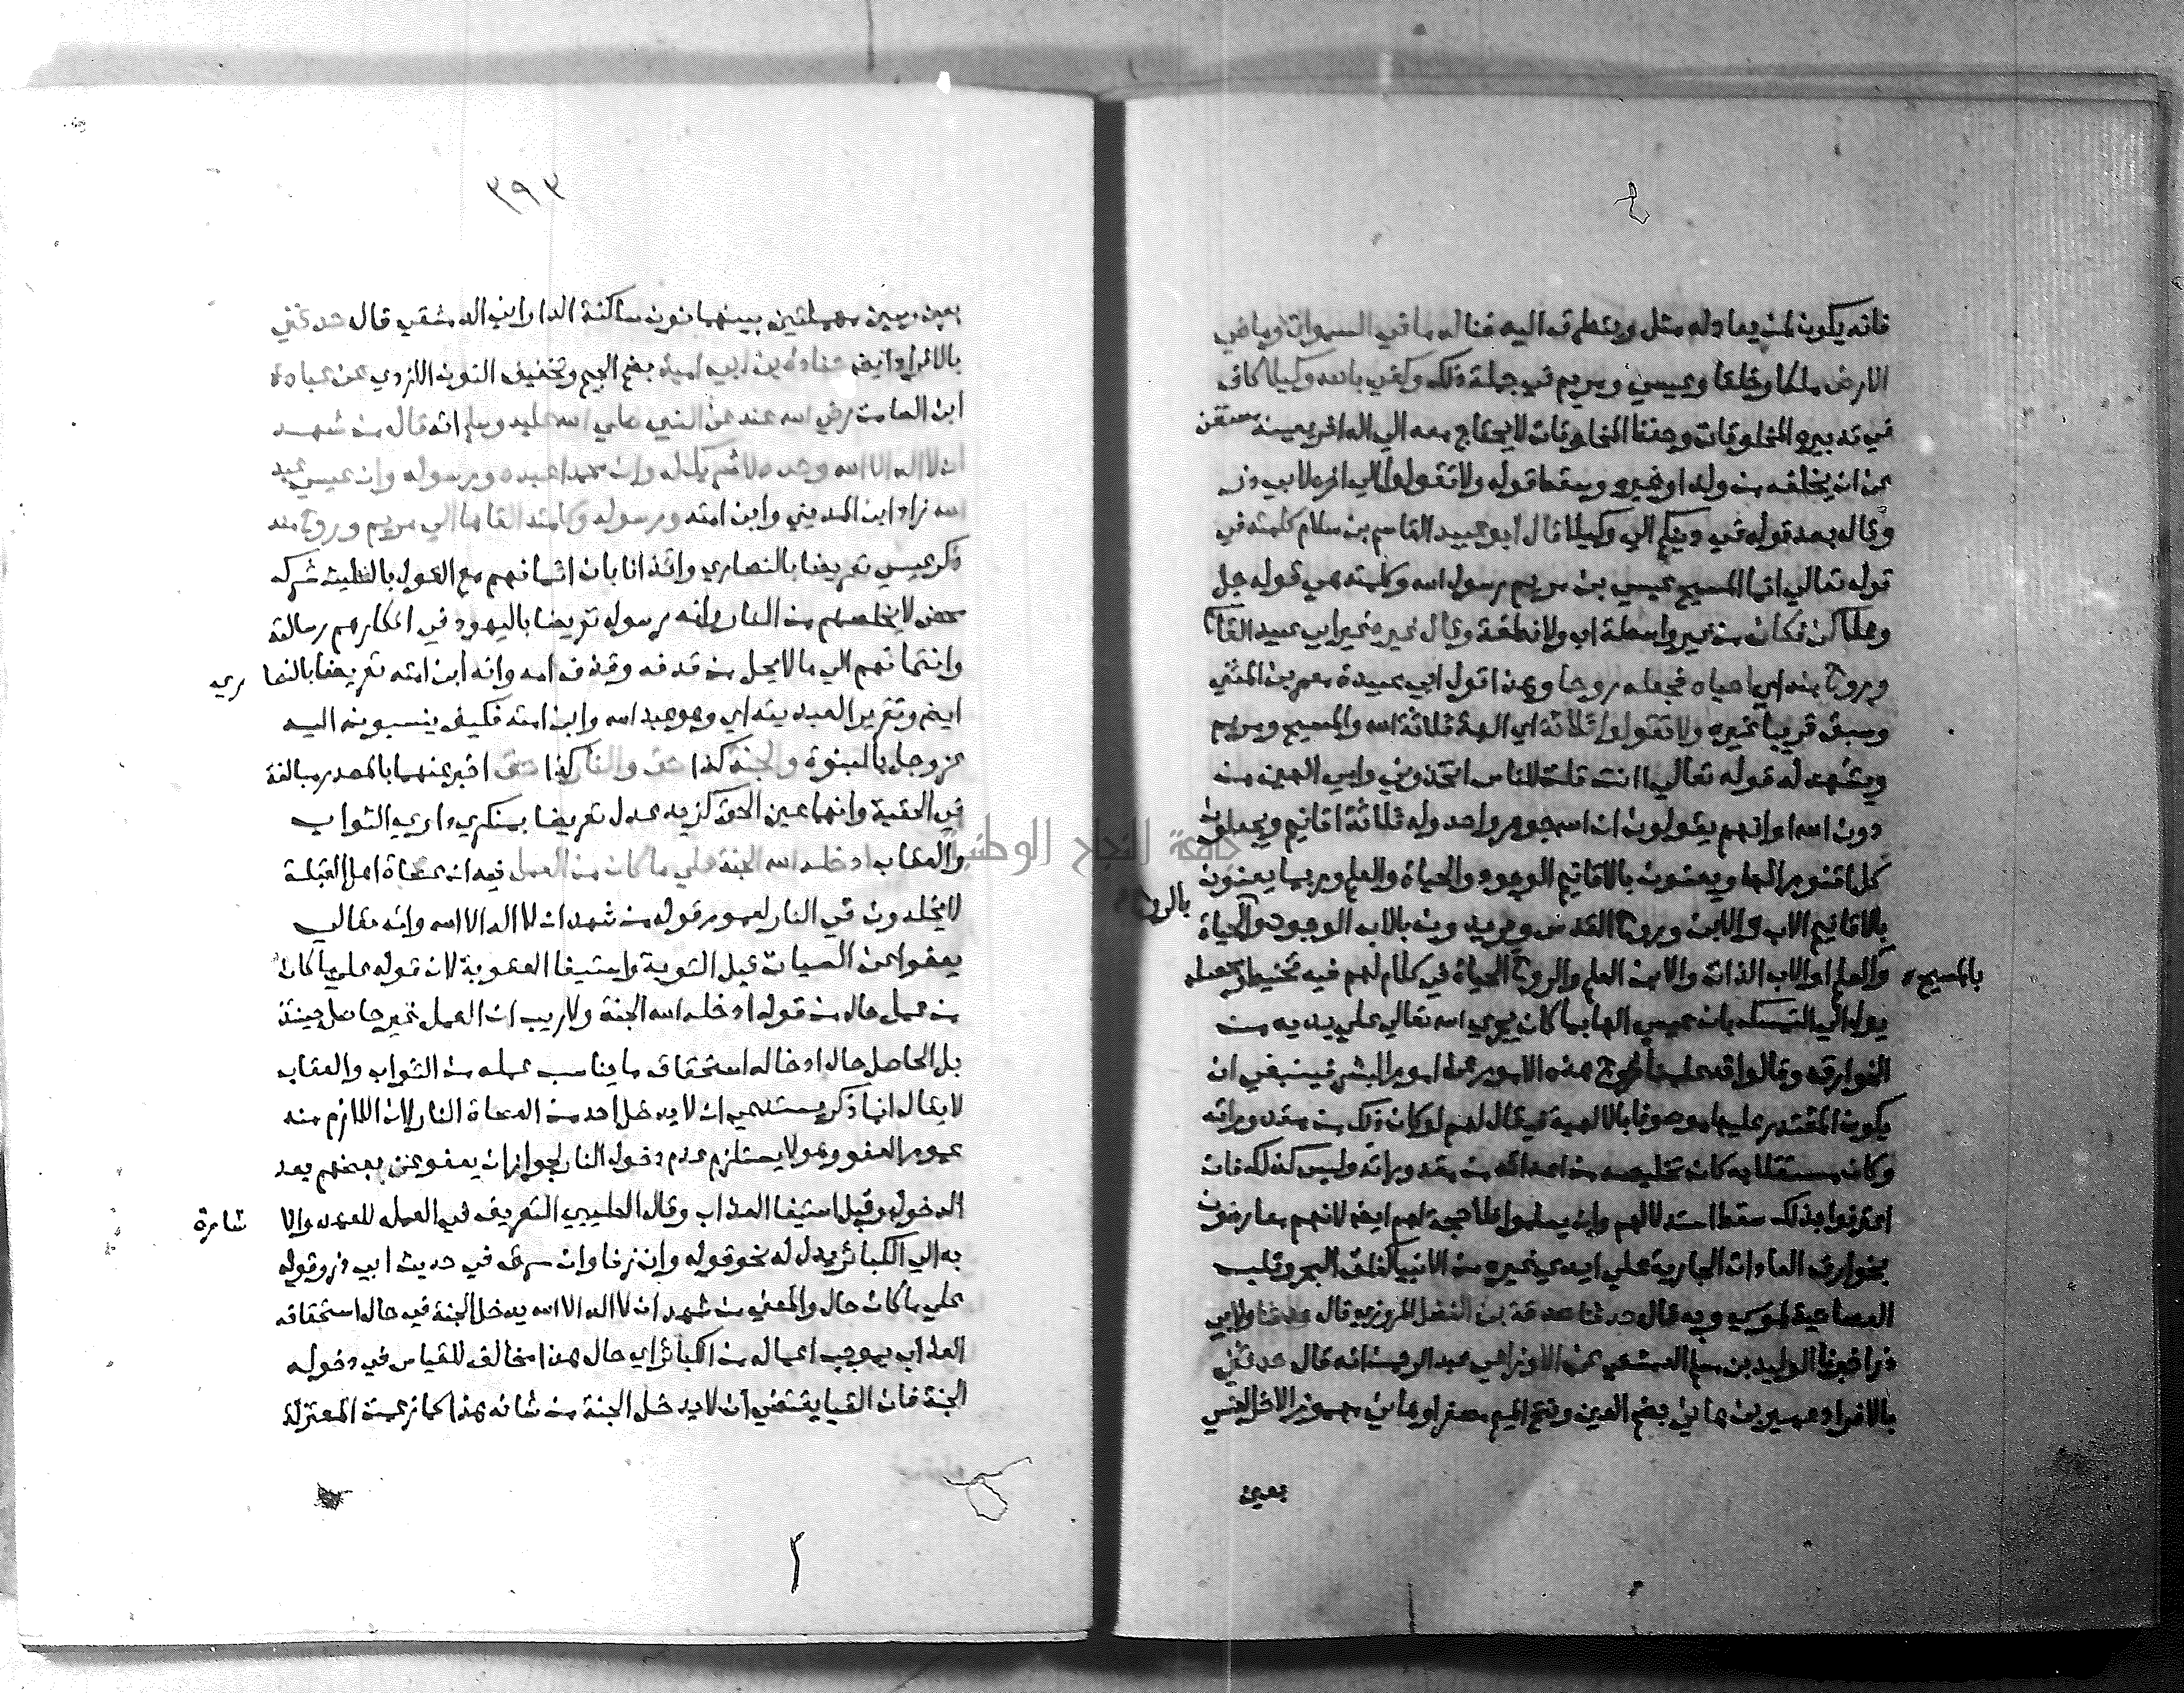 فانه يكون لمن يعادله مثل ويتطرق اليه فنا له ما في السموات وما في
الارض ملكا وخلقا وعيسي ومريم في جملة ذلك وكفي بالله وكيلا كاف
في تدبير المخلوقات وحفظ المخلوقات لا يحتاج معه الي اله اخر يعينه مستغن
عن ان يخلفه من ولد او غيره وسقط قوله ولا تقولوا الي اخره لابي ذر
وقال بعد قوله في دينكم الي وكيلا قال ابو عبيد القاسم بن سلام كلمته في
قوله تعالي انما المسيح عيسي بن مريم رسول الله وكلمته هي قوله جل
وعلا كن فكان من غير واسطة اب ولا نطفة وقال غيره غير ابي عبيد القا
وروح منه اي احياه فجعله روحا وهذا قول ابي عبيدة معمر بن المثني
وسبق قريبا غيره ولا تقولوا ثلاثة اي الهة ثلاثة الله والمسيح ومريم
ويشهد له قوله تعالي اانت قلت للناس اتخذوني وامي الهين من
دون الله او انهم يقولون ان الله جوهر واحد وله ثلاثة اقانيم ويجعلون
كل اقنوم الها ويعنون بالاقانيم الوجود والحياة والعلم وربما يعنون
بالاقانيم الاب والابن وروح القدس ويريدون بالاب الوجود وبالروح الحياة
وبالمسيح العلم او الاب الذات والابن العلم والروح الحياة في كلام لهم فيه تخبيط
يول الي التمسك بان عيسي الها بما كان يجري الله تعالي علي يديه من
الخوارق وقالوا قد علمنا خروج هذه الامور عن امور البشر فينبغي ان
يكون المقتدر عليها موصوفا بالالهية فيقال لهم لو كان ذلك من مقدوراته
وكان مستقلا به كان تخليصه من اعدائه من مقدوراته وليس كذلك فان
اعترفوا بذلك سقط استدلالهم وان يسلموا فلا حجة لهم ايضا لانهم معارضون
بخوارق العادات الجارية علي ايدي غيره من الانبيا كفلق البحر وقلب
العصا حية لموسي وبه قال حدثنا صدقة بن الفضل المروزي قال حدثنا ولابي
ذر اخبرنا الوليد بن مسلم الدمشقي عن الاوزاعي عبد الرحمن انه قال حدثني
بالافراد عمير بن هاني بضم العين وفتح الميم مصغرا وهاني مهموز الاخر العنسي
بعين
٣٩٣
بعين وسين مهملتين بينهما نون ساكنة الداراني الدمشقي قال حدثني
بالافراد ايضا جنادة بن ابي امية بضم الجيم وتخفيف النون الازدي عن عبادة
ابن الصامت رضي الله عنه عن النبي صلي الله عليه وسلم انه قال من شهد
ان لا اله الا الله وحده لا شريك له وان محمدا عبده ورسوله وان عيسي عبد
الله زاد ابن المديني وابن امته ورسوله وكلمته القاها الي مريم وروح منه
ذكر عيسي تعريضا بالنصاري وايذانا بان ايمانهم مع القول بالتثليث شرك
محض لا يخلصهم من النار وانه رسوله تعريضا باليهود في انكارهم رسالته
وانتمائهم الي ما لا يحل من قذفه وقذف امه وانه ابن امته تعريضا بالنصا ري
ايضا وتقرير العبديته اي وهو عبد الله وابن امته فكيف ينسبونه اليه
عز وجل بالبنوة والجنة كذا حق والنار كذا حق اخبر عنهما بالمصدر مبالغة
في الحقية وانهما عين الحق كزيد عدل تعريضا بمنكري داري الثواب
والعقاب ادخله الله الجنة علي ما كان من العمل فيه ان عصاة اهل القبلة
لا يخلدون في النار لعموم قوله من شهد ان لا اله الا الله وانه تعالي
يعفو عن السيات قبل التوبة واستيفا العقوبة لان قوله علي ما كان
من عمل حال من قوله ادخله الله الجنة ولا ريب ان العمل غير حاصل حينئذ
بل الحاصل حال ادخاله استحقاق ما يناسب عمله من الثواب والعقاب
لا يقال انما ذكر يستدعي ان لا يدخل احد من العصاة النار لان اللازم منه
عموم العفو وهو لا يستلزم عدم دخول النار لجواز ان يعفو عن بعضهم بعد
الدخول وقبل استيفا العذاب وقال الطيبي التعريف في العمل للعهد والا شارة
به الي الكبائر يدل له نحو قوله وان زنا وان سرق في حديث ابي ذر وقوله
علي ما كان حال والمعني من شهد ان لا اله الا الله يدخل الجنة في حال استحقاقه
العذاب بموجب اعماله من الكبائر اي حال هذا مخالف للقياس في دخول
الجنة فان القيا يقتضي ان لا يدخل الجنة من شانه هذا كما زعمت المعتزلة
جامعة النجاح الوطنية